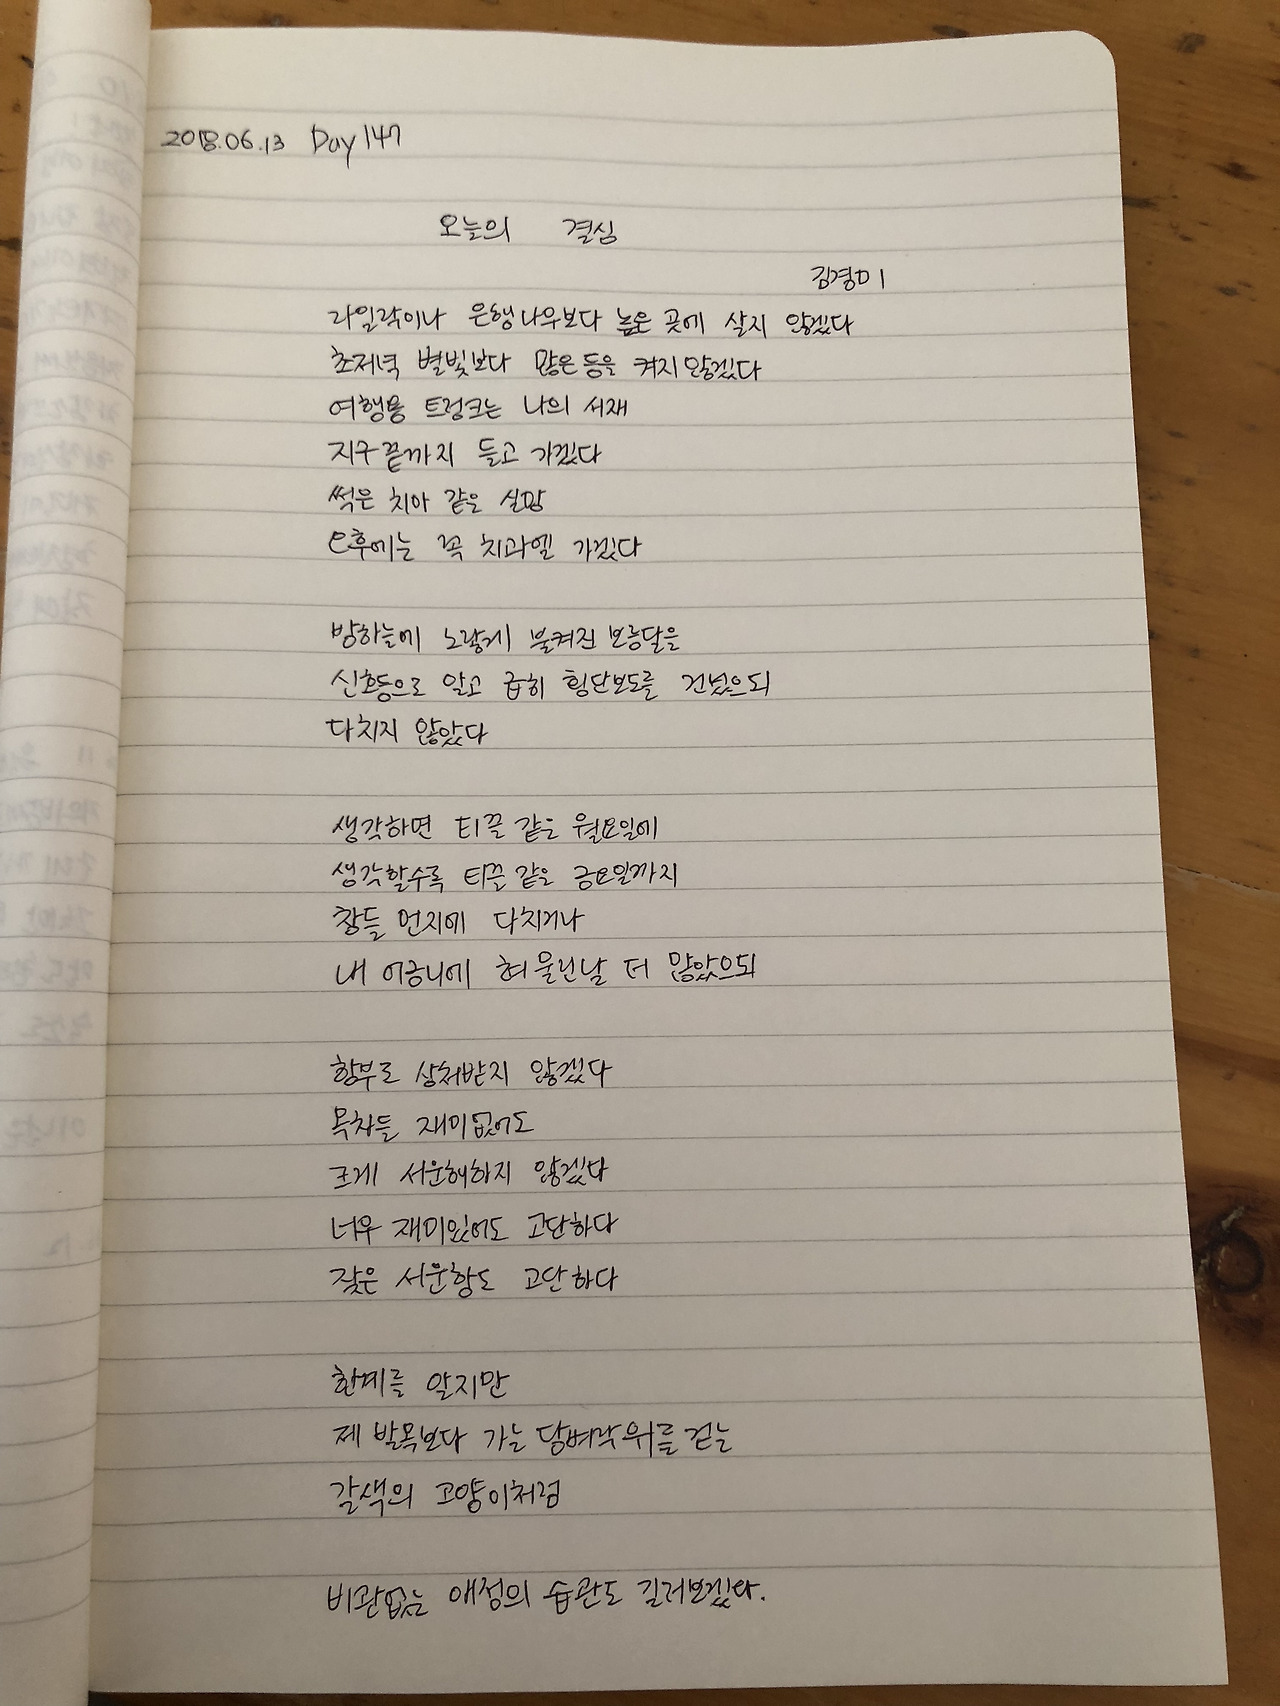 2018.06.13 Day 147
오늘의 결심
김경미
라일락이나 은행나무보다 높은 곳에 살지 않겠다
초저녁 별빛보다 많은 등을 켜지 않겠다
여행용 트렁크는 나의 서재
지구 끝까지 들고 가겠다
썩은 치아 같은 실망
오후에는 꼭 치과엘 가겠다
밤하늘에 노랗게 불켜진 보름달을
신호등으로 알고 급히 횡단보도를 건넜으되
다치지 않았다
생각하면 티끌 같은 월요일에
생각할수록 티끌 같은 금요일까지
창틀 먼지에 다치거나
내 어금니에 혀 물린 날 더 많았으되
함부로 상처받지 않겠다
목차들 재미없어도
크게 서운해하지 않겠다
너무 재미있어도 고단하다
잦은 서운함도 고단하다
한계를 알지만
제 발목보다 가는 담벼락 위를 걷는
갈색의 고양이처럼
비관없는 애정의 습관도 길러보겠다.